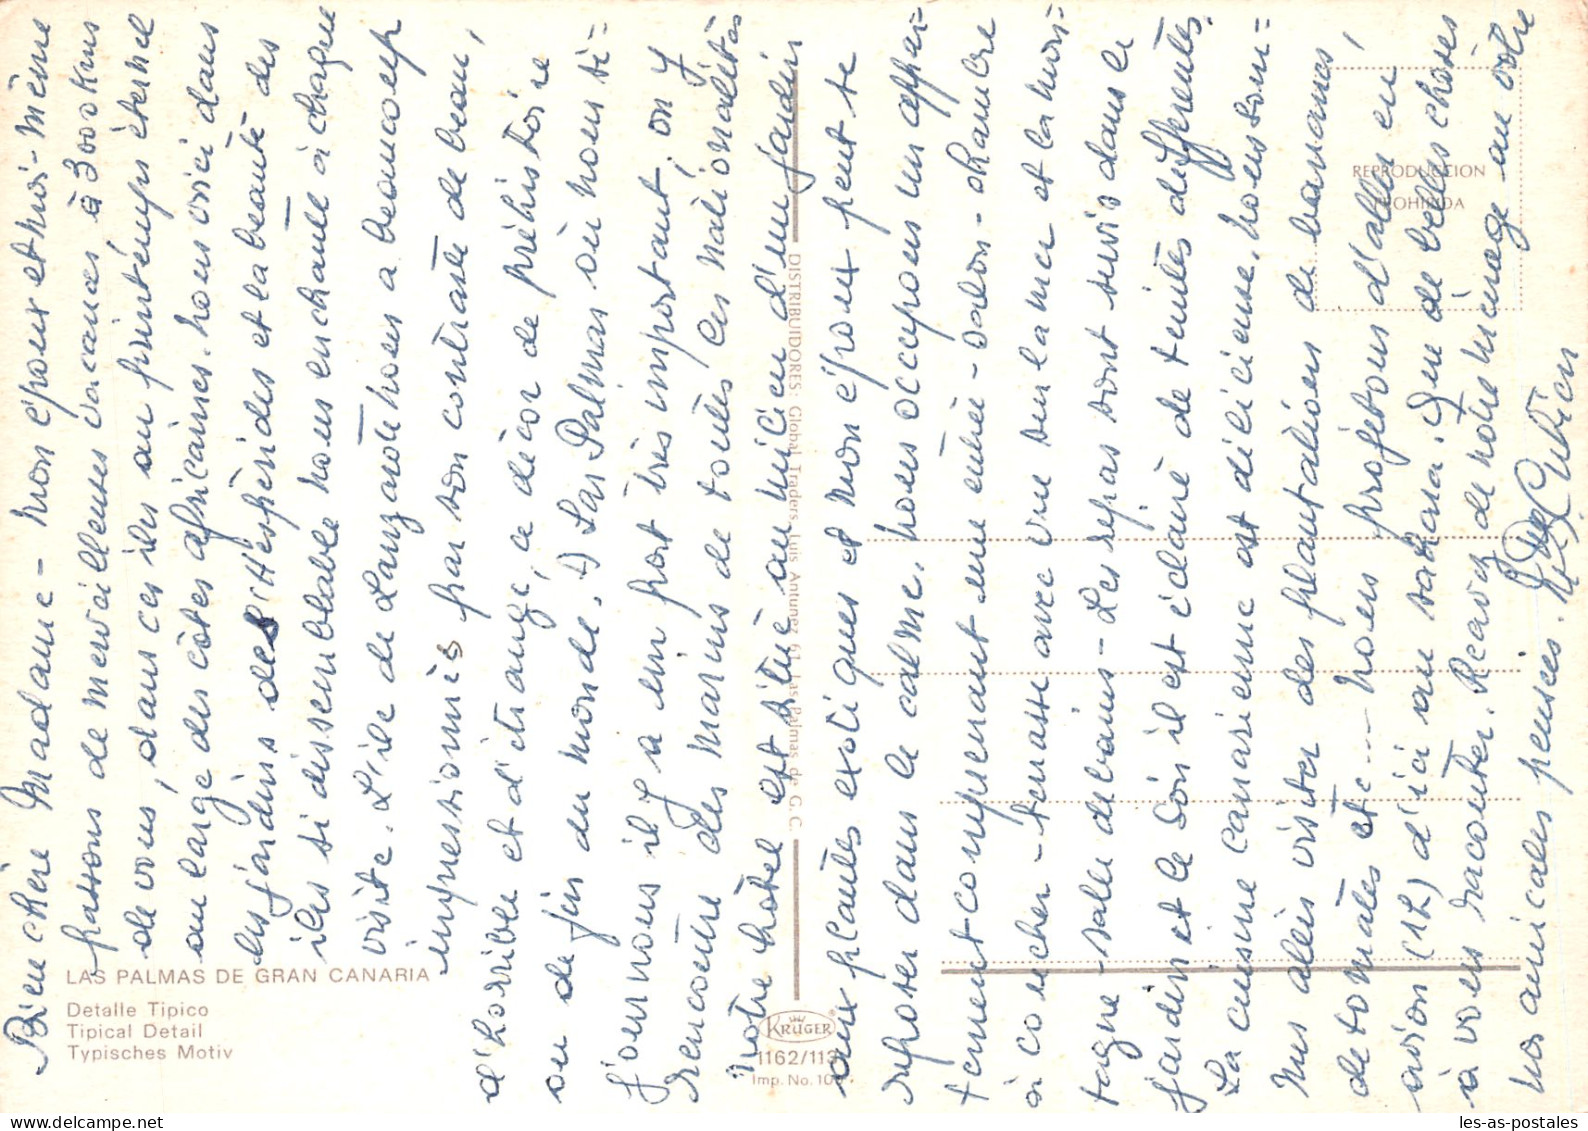 Bien chère Madame - mon époux et moi-même
passons de merveilleuses vacances à 3000 kms
de vous, dans ces îles au printemps éternel
au large des côtes africaines. nous voici dans
les jardins des Hespérides et la beauté des
îles si dissemblable nous enchante à chaque
visite. L'île de Lanzarote nous a beaucoup
impressionnés par son contraste de beau,
d'horrible et d'étrange, ce décor de préhistoire
ou de fin du monde. à Las Palmas où nous sé=
journons il y a un port très important, on y
rencontre des marins de toutes les nationalités
Notre hôtel est situé au milieu d'un jardin
aux plantes exotiques et mon époux peut se
reposer dans le calme. nous occupons un appar=
tement comprenant une entrée - salon - chambre
à coucher - terrasse avec vue sur la mer et la mon=
tagne - salle de bains - Les repas sont servis dans le
jardin et le soir il est éclairé de teintes différentes.
La cuisine canarienne est délicieuse. nous som=
mes allés visiter des plantations de bananes,
de tomates etc... nous profitons d'aller en
avion (1h) d'ici au Sahara. Que de belles choses
à vous raconter. Recevez de notre ménage au vôtre
nos amicales pensées.
LAS PALMAS DE GRAN CANARIA
Detalle Tipico
Tipical Detail
Typisches Motiv
DISTRIBUIDORES: Global Traders, Luis Antunez 61, Las Palmas de G. C.
KRÜGER
1162/113
Imp. No. 100
REPRODUCCION
PROHIBIDA
les-as-postales